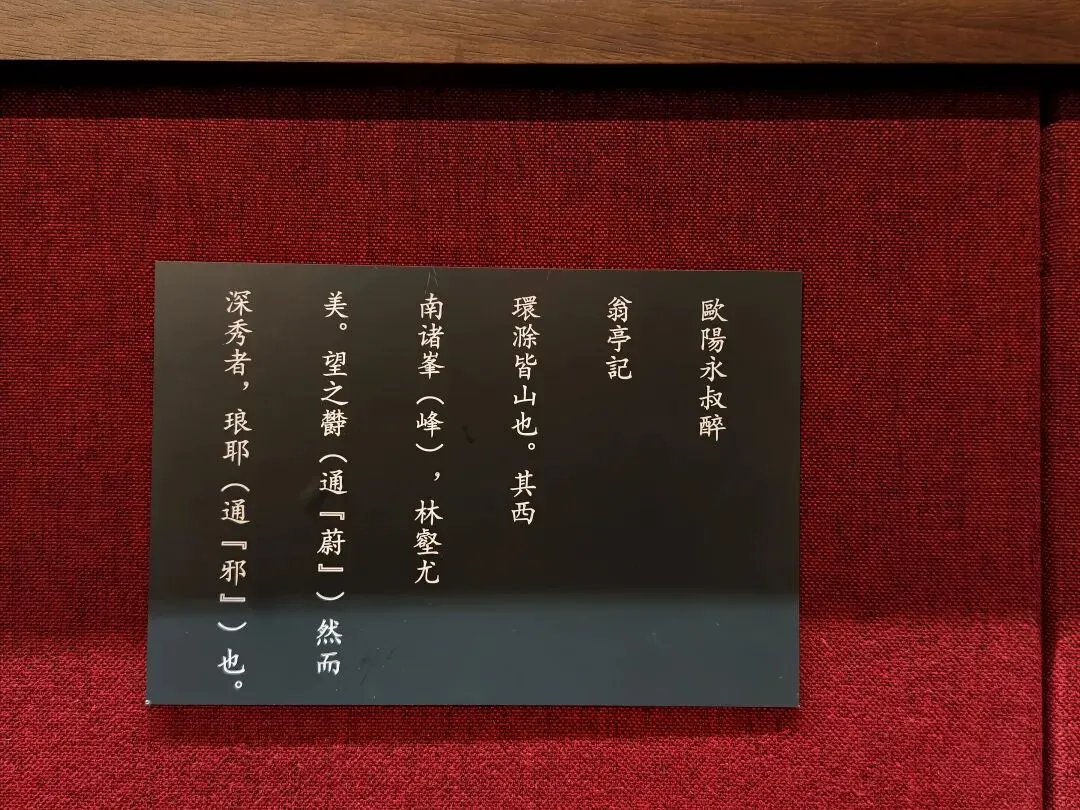 歐陽永叔醉
翁亭記
環滁皆山也。其西
南诸峯（峰），林壑尤
美。望之欝（通『蔚』）然而
深秀者，琅耶（通『邪』）也。